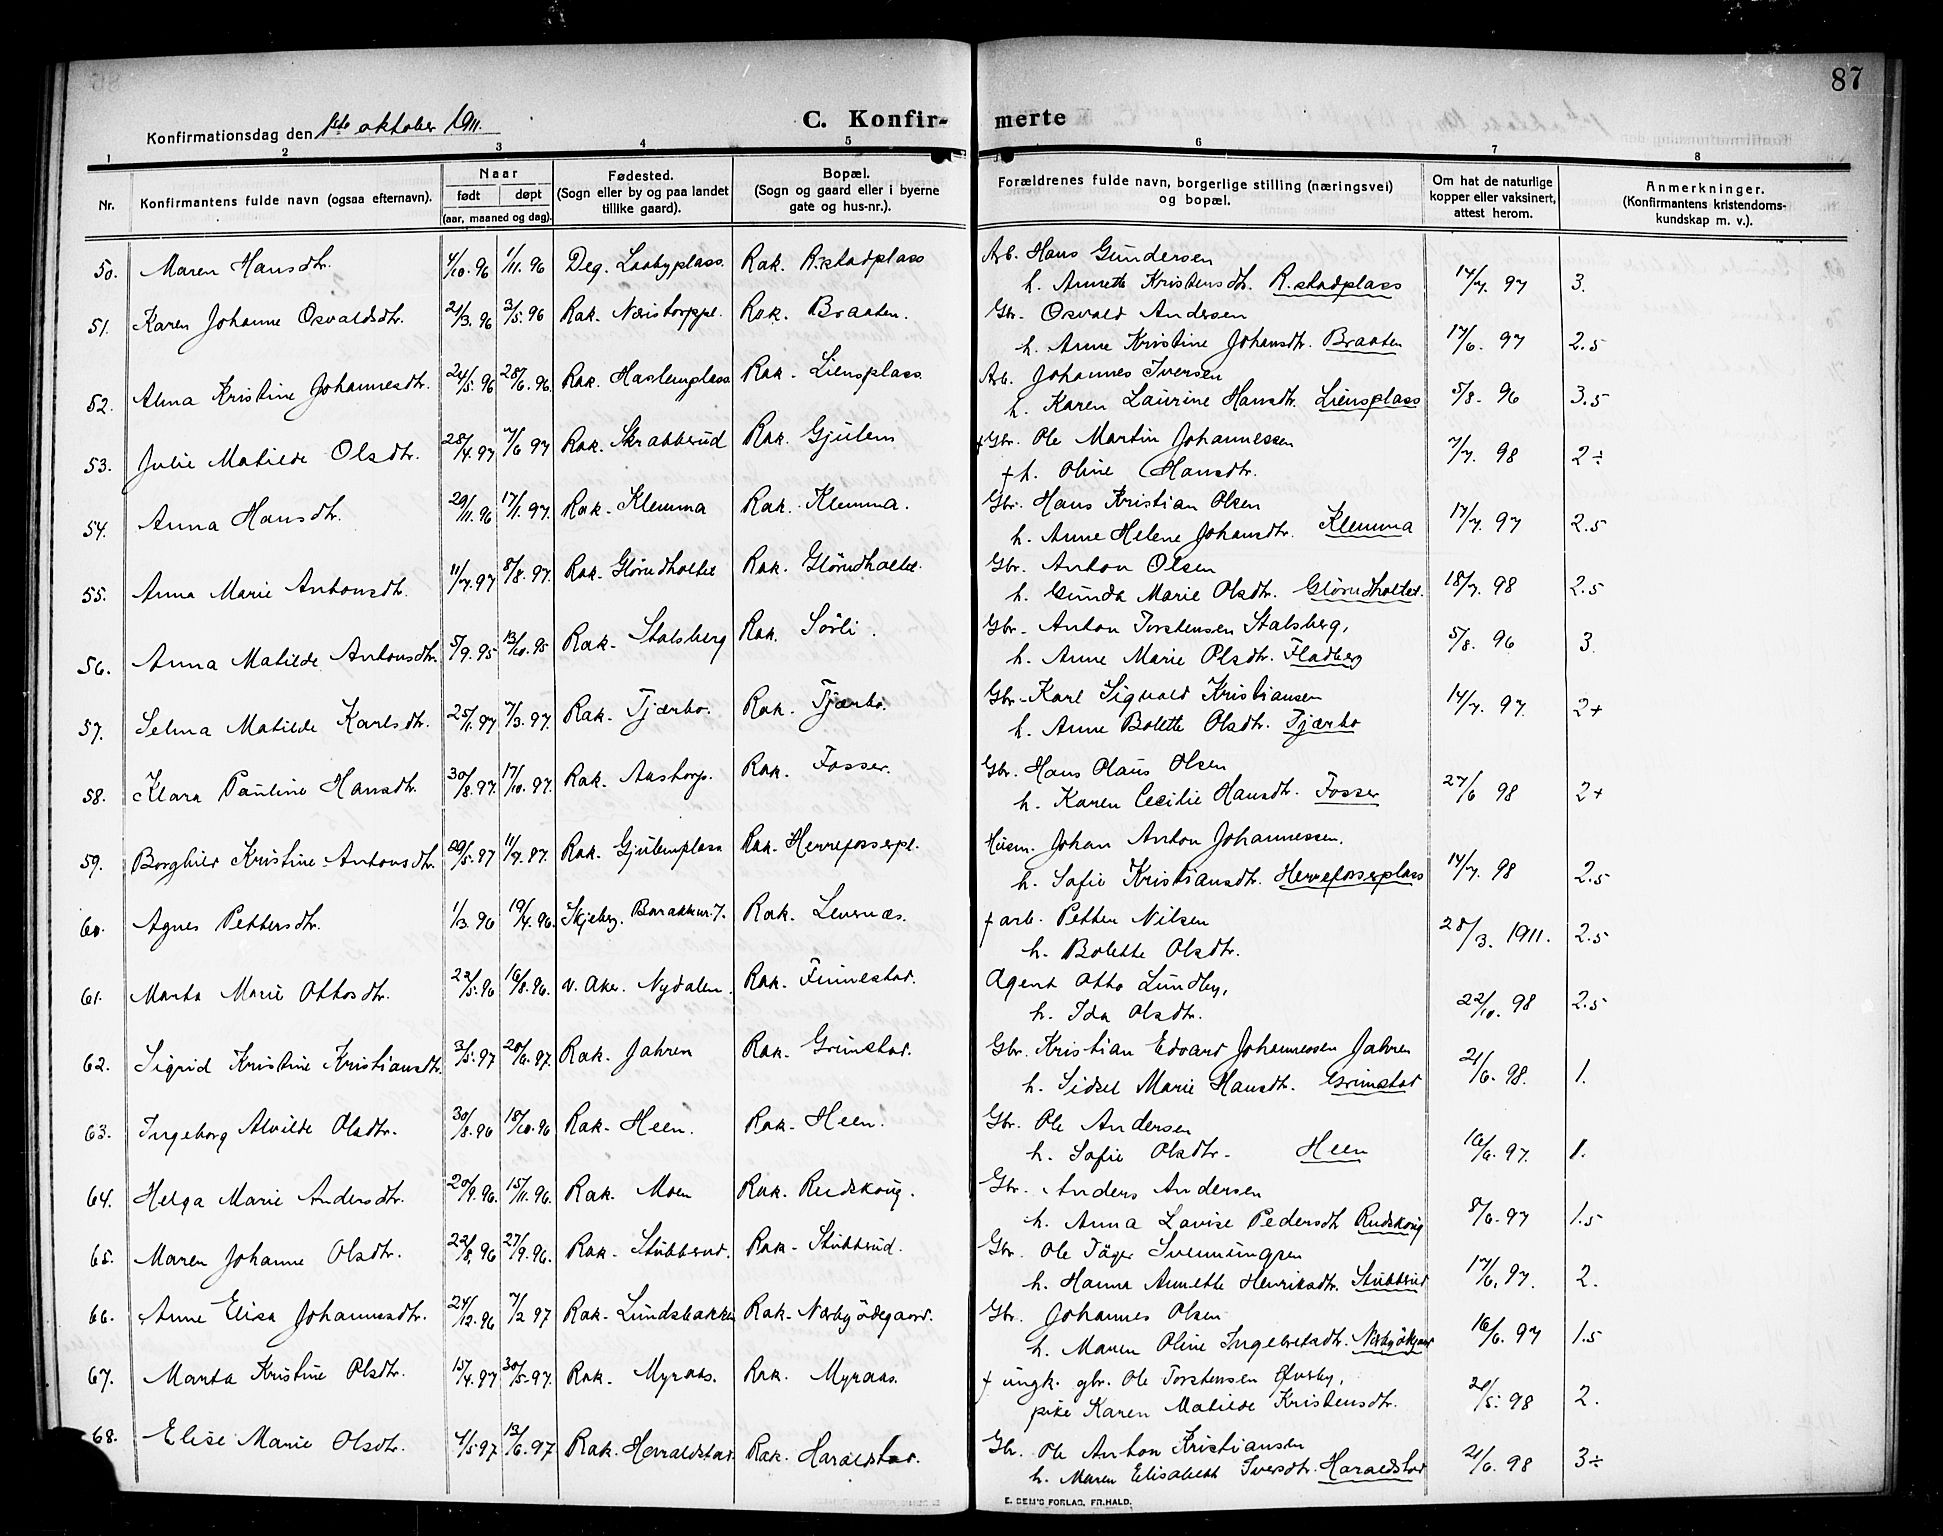 87
Konfirmationsdag den 1ste oktober 1911.
C. Konfir- merte
1 2 3 4 5 6 7 8
Nr. Konfirmantens fulde navn (ogsaa efternavn). Naar født døpt (aar, maaned og dag). Fødested. (Sogn eller by og paa landet tillike gaard). Bopæl. (Sogn og gaard eller i byerne gate og hus-nr.). Forældrenes fulde navn, borgerlige stilling (næringsvei) og bopæl. Om hat de naturlige kopper eller vaksinert, attest herom. Anmerkninger. (Konfirmantens kristendoms- kundskap m. v.).
50. Maren Hansdtr. 4/10. 96 1/11. 96 Deg. Laabyplass. Rak. R.stadplass Arb. Hans Gundersen
h. Annette Kristensdtr. R.stadplass 14/7. 97 3.
51. Karen Johanne Osvaldsdtr. 21/3. 96 3/5. 96 Rak. Næstorppl. Rak. Braaten. Gbr. Osvald Andersen
h. Anne Kristine Johansdtr. Braaten 17/6. 97 2.5
52. Alma Kristine Johannesdtr. 24/5. 96 28/6. 96. Rak. Haslemplass Rak. Liensplass. Arb. Johannes Iversen
h. Karen Laurine Hansdtr. Liensplass 5/8. 96 3.5
53. Julie Matilde Olsdtr. 28/4. 97 7/6 97 Rak. Skrabberud Rak. Gjulem † Gbr. Ole Martin Johannessen
† h. Oline Hansdtr. 7/7. 98 2÷
54. Anna Hansdtr. 29/11. 96 17/1. 97. Rak. Klemma Rak. Klemma. Gbr. Hans Kristian Olsen
h. Anne Helene Johansdtr. Klemma 17/7. 97 2.5
55. Anna Marie Antonsdtr. 11/7. 97 8/8. 97. Rak. Glörudholtet Rak. Glörudholtet. Gbr. Anton Olsen
h. Gunda Marie Olsdtr. Glörudholtet. 18/7. 98 2.5
56. Anna Matilde Antonsdtr. 5/9. 95 13/10. 95 Rak. Stalsberg Rak. Sörli. Gbr. Anton Torstensen Stalsberg,
h. Anne Marie Olsdtr. Fladberg 5/8. 96 3.
57. Selma Matilde Karlsdtr. 25/1. 97 7/3. 97. Rak. Tjærbo. Rak. Tjærbo. Gbr. Karl Sigvald Kristiansen
h. Anne Bolette Olsdtr. Tjærbo 14/7. 97. 2+
58. Klara Pauline Hansdtr. 30/8. 97. 17/10. 97. Rak. Aastorp. Rak. Fosser. Gbr. Hans Olaus Olsen
h. Karen Cecilie Hansdtr. Fosser 27/6 98 2+
59. Borghild Kristine Antonsdtr. 29/5. 97 11/7. 97. Rak. Gjulemplass Rak. Herrefosserpl. Husm. Johan Anton Johannessen.
h. Sofie Kristiansdtr. Herrefosserplass 14/7. 98 2.5
60. Agnes Pettersdtr. 1/3. 96 19/4. 96. Skjeberg. Barakkenr. 7. Rak. Levernæs. † arb. Petter Nilsen
h. Bolette Olsdtr. 28/3. 1911. 2.5
61. Marta Marie Ottosdtr. 22/5. 96 16/8. 96. v. Aker. Nydalen. Rak. Finnestad. Agent Otto Lundby,
h. Ida Olsdtr. 22/10. 98 2.5
62. Sigrid Kristine Kristiansdtr. 3/5. 97 20/6. 97. Rak. Jahren Rak. Grimstad. Gbr. Kristian Edvard Johannessen Jahren
h. Sidsel Marie Hansdtr. Grimstad 21/6. 98. 1.
63. Ingeborg Alvilde Olsdtr. 30/8. 96 18/10. 96 Rak. Heen. Rak. Heen. Gbr. Ole Andersen
h. Sofie Olsdtr. Heen 16/6. 97. 1.
64. Helga Marie Andersdtr. 20/9. 96. 15/11. 96. Rak. Moen Rak. Rudskoug. Gbr. Anders Andersen
h. Anna Lovise Pedersdtr Rudskoug 8/6. 97 1.5
65. Maren Johanne Olsdtr. 22/8. 96 27/9. 96. Rak. Stubberud. Rak. Stubberud. Gbr. Ole Jäger Svenningsen
h. Hanna Annette Henriksdtr. Stubberud 17/6. 97. 2.
66. Anne Elisa Johannesdtr. 24/12. 96 7/2 97 Rak. Lundsbakken Rak. Nærbyödegaard. Gbr. Johannes Olsen
h. Maren Oline Ingebretsdtr. 16/6. 97 1.5
67. Marta Kristine Olsdtr. 15/4. 97 30/5. 97. Rak. Myraas. Rak. Myraas. † ungk. gbr. Ole Torstensen Øvsby,
pike Karen Matilde Kristensdtr. /5. 98 2.
68. Elise Marie Olsdtr. 4/5 97 13/6. 97 Rak. Harraldstad. Rak. Haraldstad. Gbr. Ole Anton Kristiansen
h. Maren Elisabeth Iversdtr. Haraldstad 21/6. 98 3÷
E. SEM'S FORLAG, FR.HALD.